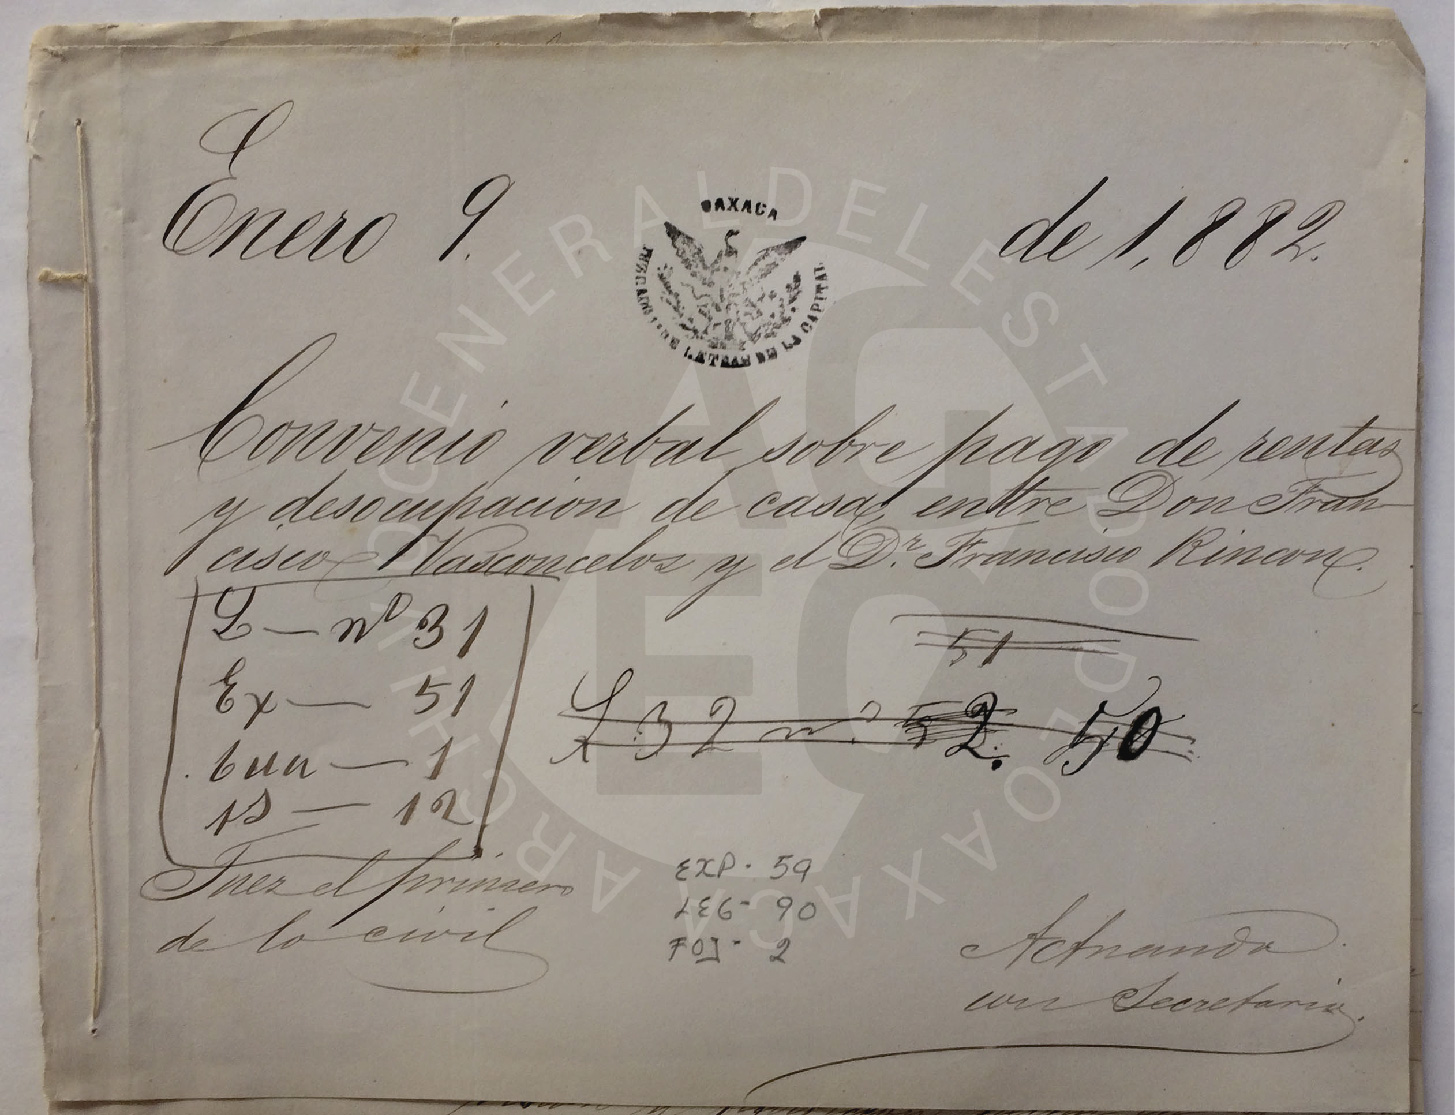 Enero 9. de 1,882.
OAXACA
JUZGADO 1º DE LETRAS DE LA CAPITAL
Convenio verbal sobre pago de rentas
y desocupacion de casa, entre Don Fran-
cisco Vasconcelos y el D.r Francisco Rincon.
L — nº 31
Ex — 51
— 1
— 12
51
L. 32 n.º 52. 50
Juez el primero
de lo civil
EXP. 59
LEG- 90
FOJ- 2
Actuando
con Secretario.
ARCHIVO GENERAL DEL ESTADO DE OAXACA
AGEO